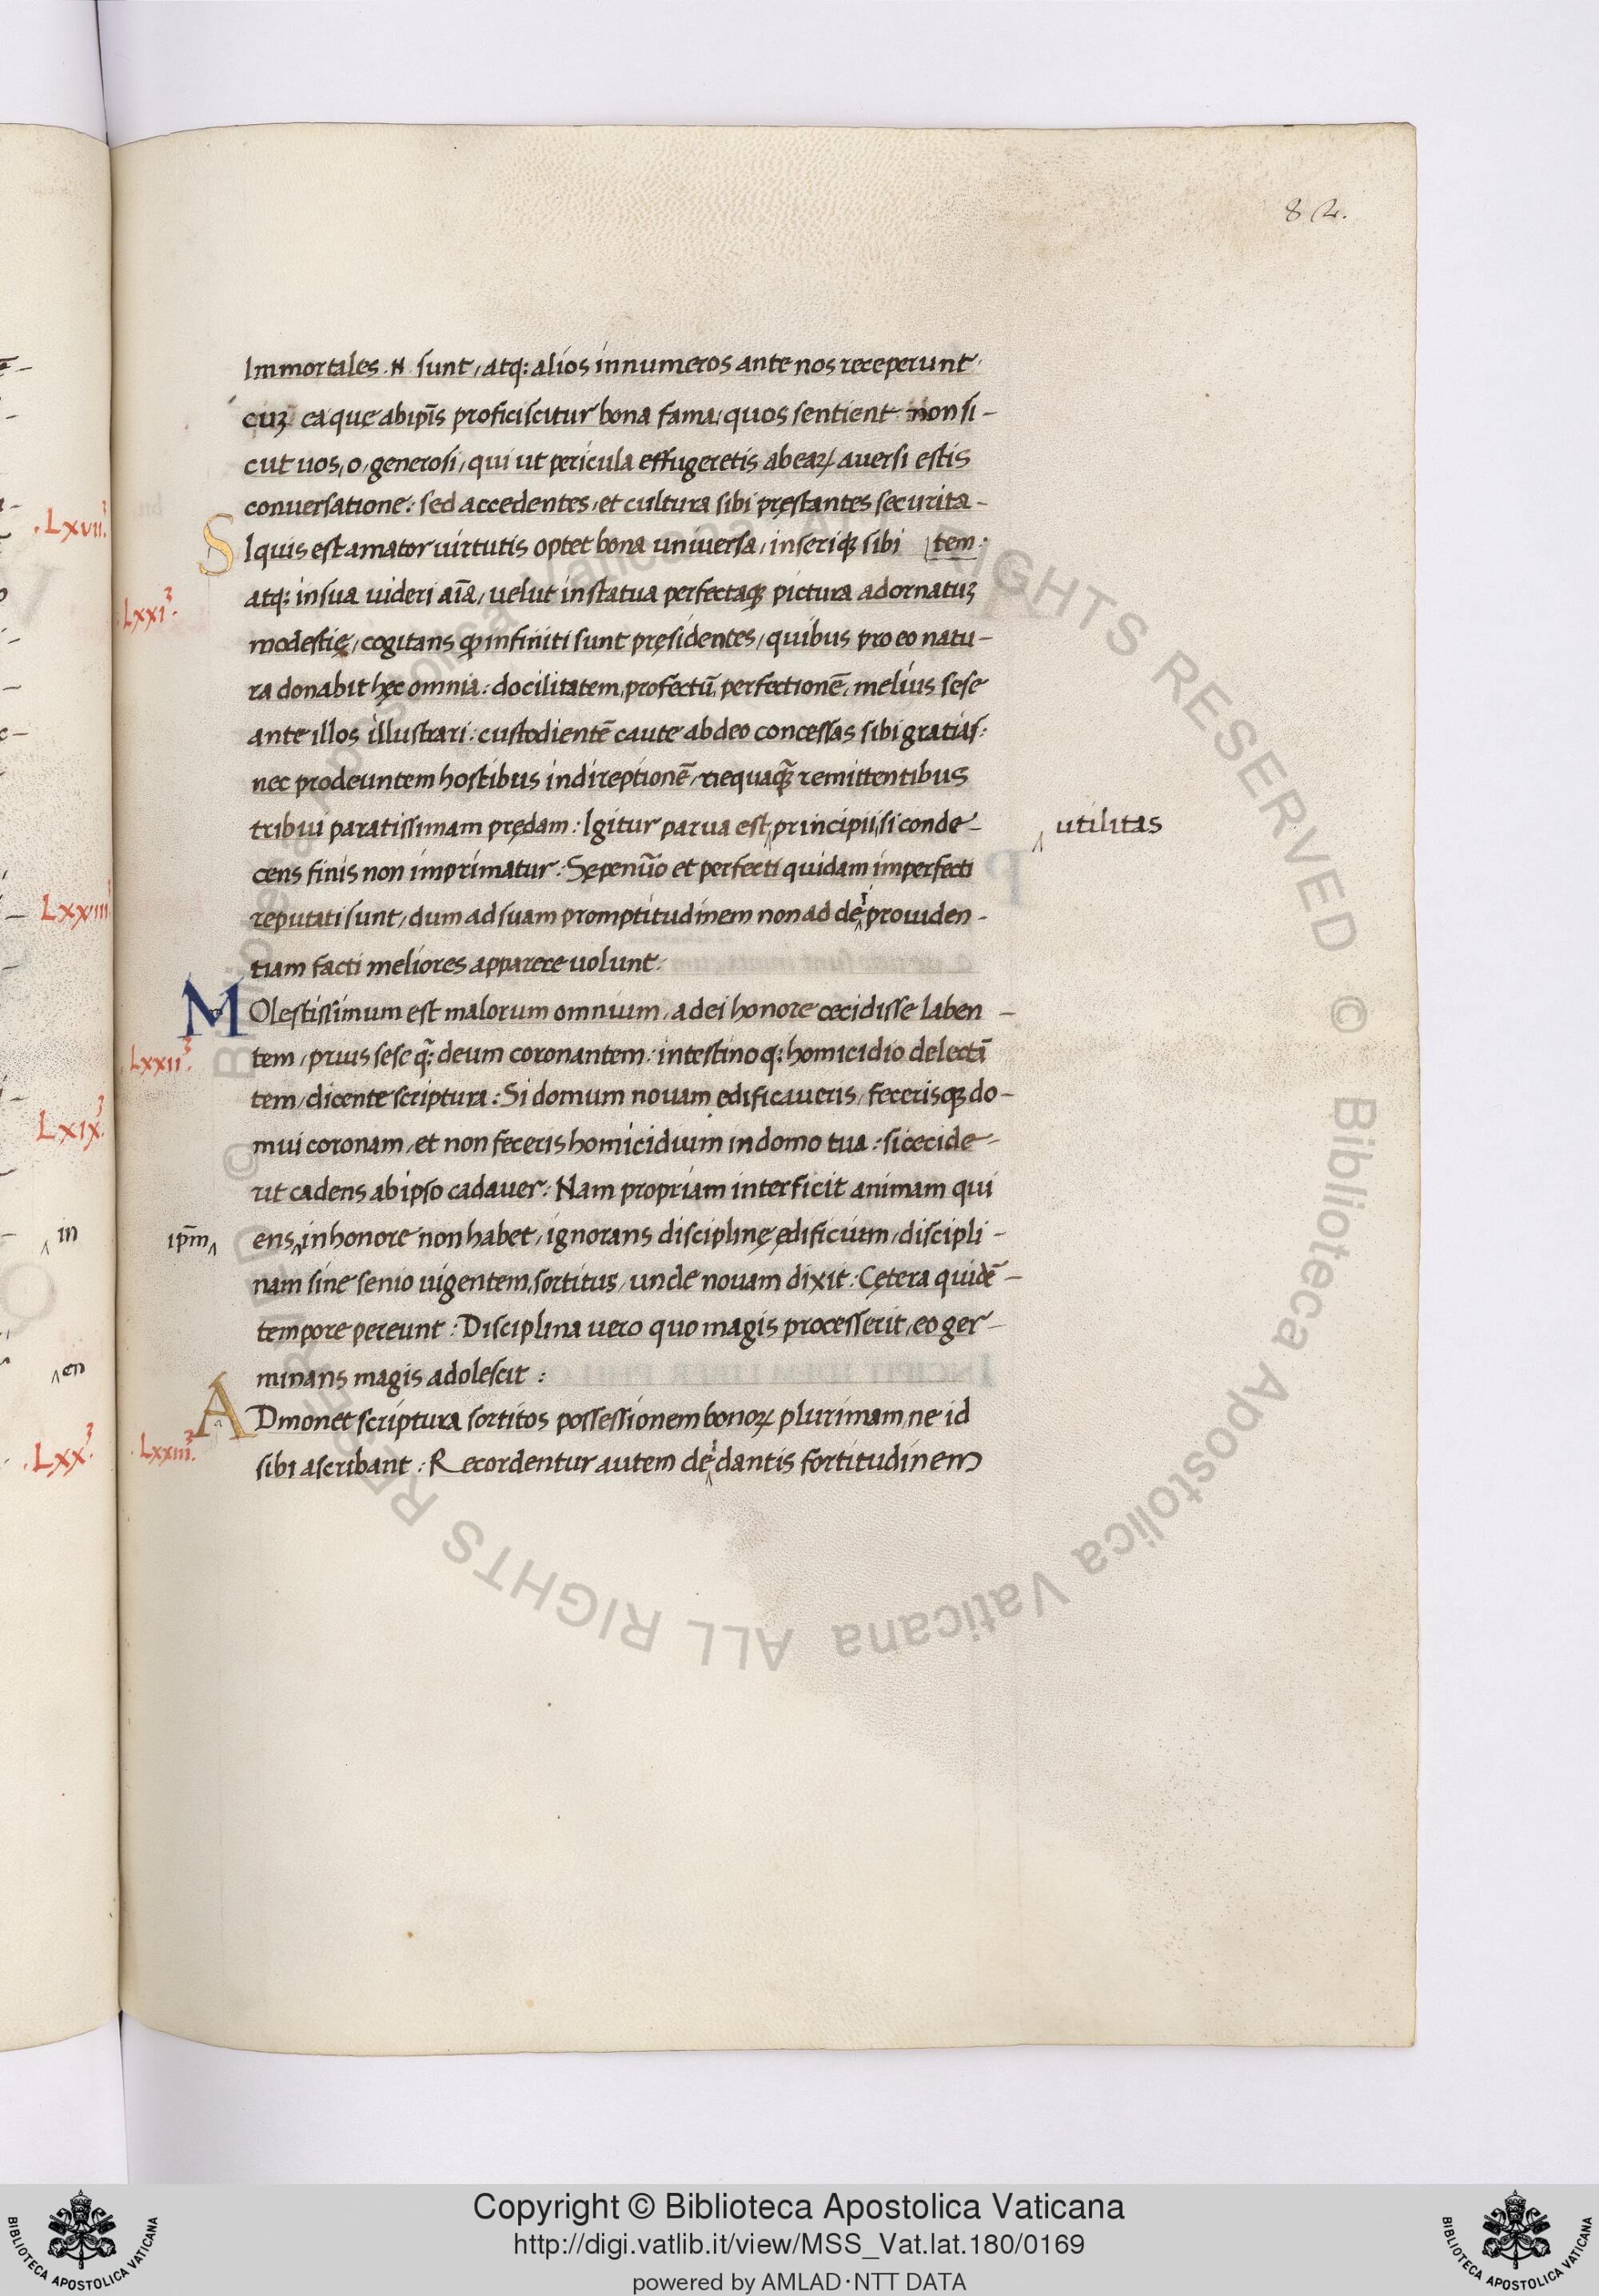 82.
Immortales .N. sunt, atq: alios innumeros ante nos receperunt.
cuȝ ea que ab ip̄is proficiscitur bona fama, quos sentient non si-
cut uos, o, generosi, qui ut pericula effugeretis ab eaꝝ auersi estis
conuersatione: sed accedentes, et cultura sibi pręstantes securita-
SIquis est amator uirtutis optet bona uniuersa, inseriqꝫ sibi tem:
.Lxxi³.
atq: in sua uideri aīa, uelut in statua perfectaqꝫ pictura adornatuȝ
modestię, cogitans ꝙ infiniti sunt pręsidentes, quibus pro eo natu-
ra donabit hęc omnia: docilitatem, profectū, perfectionē, melius sese
ante illos illustrari: custodientē caute ab deo concessas sibi gratias:
nec prodeuntem hostibus in direptionē, nequaq̄ remittentibus
tribui paratissimam prędam: Igitur parua est ‸ principii, si conde- ‸ utilitas
cens finis non imprimatur: Sępenūo et perfecti quidam imperfecti
reputati sunt, dum ad suam promptitudinem non ad de‸i prouiden-
tiam facti meliores apparere uolunt:
MOlestissimum est malorum omnium, a dei honore cecidisse laben-
.Lxxii³.
tem, prius sese q̄: deum coronantem: intestinoq: homicidio delectā
tem, dicente scriptura: Si domum nouam ędificaueris, fecerisqꝫ do-
mui coronam, et non feceris homicidium in domo tua: si cecide-
rit cadens ab ipso cadauer: Nam propriam interficit animam qui
ip̄m‸ ens ‸ in honore non habet, ignorans disciplinę ędificium, discipli-
nam sine senio uigentem, sortitus, unde nouam dixit: Cętera quidē-
tempore pereunt: Disciplina uero quo magis processerit, eo ger-
minans magis adolescit:
ADmonet scriptura sortitos possessionem bonoꝝ plurimam, ne id
.Lxxiii³.
sibi ascribant: Recordentur autem de‸i dantis fortitudinem
.Lxvii³.
Lxxiii
Lxix³.
‸ in
‸ en
.Lxx³.
© Biblioteca Apostolica Vaticana ALL RIGHTS RESERVED © Biblioteca Apostolica Vaticana ALL RIGHTS RESERVED
Copyright © Biblioteca Apostolica Vaticana
http://digi.vatlib.it/view/MSS_Vat.lat.180/0169
powered by AMLAD·NTT DATA
BIBLIOTECA APOSTOLICA VATICANA
BIBLIOTECA APOSTOLICA VATICANA